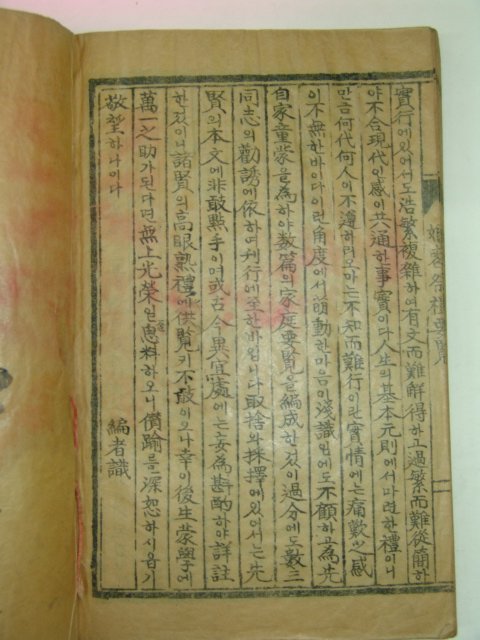 實行에잇어서도浩繁複雜하여有文而難解得하고過繁而難從簡하
야不合現代인感이共通한事實이다人生의基本元則에서마련한禮이니
만금何代何人이不遵하려오마는不知而難行이란實情에는痛歎之感
이不無한바이다이런角度에서萌動한마음이淺識임에도不顧하고為先
自家童蒙을為하야数篇의家庭要覽을編成한것이過分에도數三
同志의勸誘에依하여刋行에至한바임니다取捨와採擇에잇어서는先
賢의本文에非敢點手이여或古今異宜處에는妄為斟酌하야詳註
한것이니諸賢의高眼熟禮에供覽키不敢이오나幸이後生蒙學에
萬一之助가된다면無上光榮일가思料하오니僭踰를深恕하시옵기
敬望하나이다 編者識